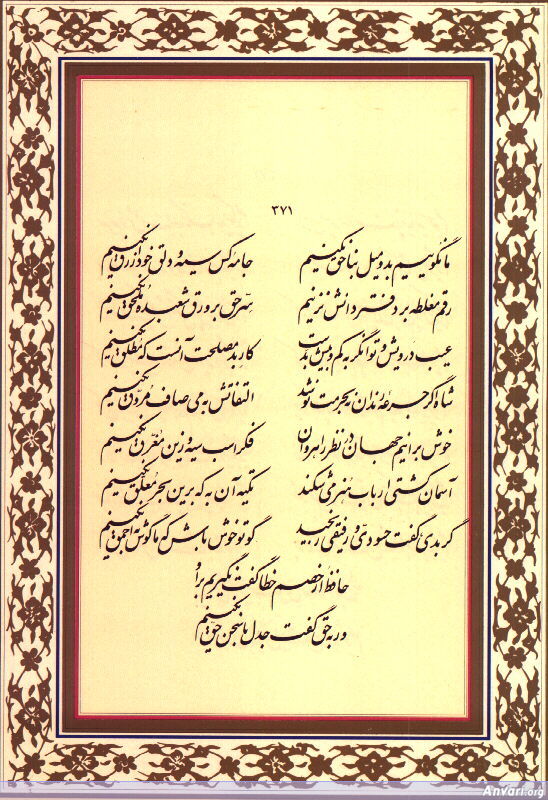 ۳۷۱
ما نگوییم بد و میل بناحق نکنیم جامه کس سیه و دلق خود ازرق نکنیم
رقم مغلطه بر دفتر دانش نزنیم سرّ حق بر ورق شعبده ملحق نکنیم
عیب درویش و توانگر به کم و بیش بدست کار بد مصلحت آنست که مطلق نکنیم
شاه اگر جرعه رندان نه بحرمت نوشد التفاتش به می صاف مروّق نکنیم
خوش برانیم جهان در نظر راهروان فکر اسب سیه و زین مغرّق نکنیم
آسمان کشتی ارباب هنر می شکند تکیه آن به که برین بحر معلّق نکنیم
گر بدی گفت حسودی و رفیقی رنجید گو تو خوش باش که ما گوش به احمق نکنیم
حافظ ار خصم خطا گفت نگیریم برو
ور به حق گفت جدل با سخن حق نکنیم
Anvari.org